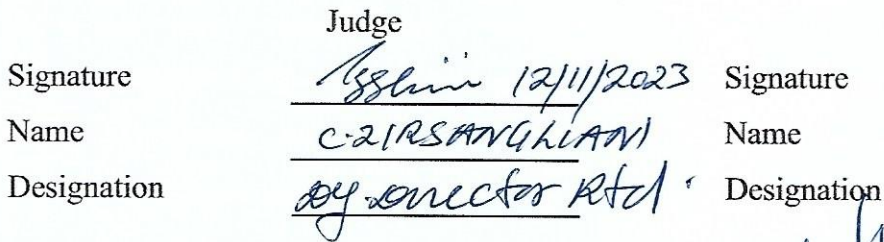 Judge
Signature 12/11/2023 Signature
Name C. ZIRSANGLIANI Name
Designation Dy. Director Rtd. Designation